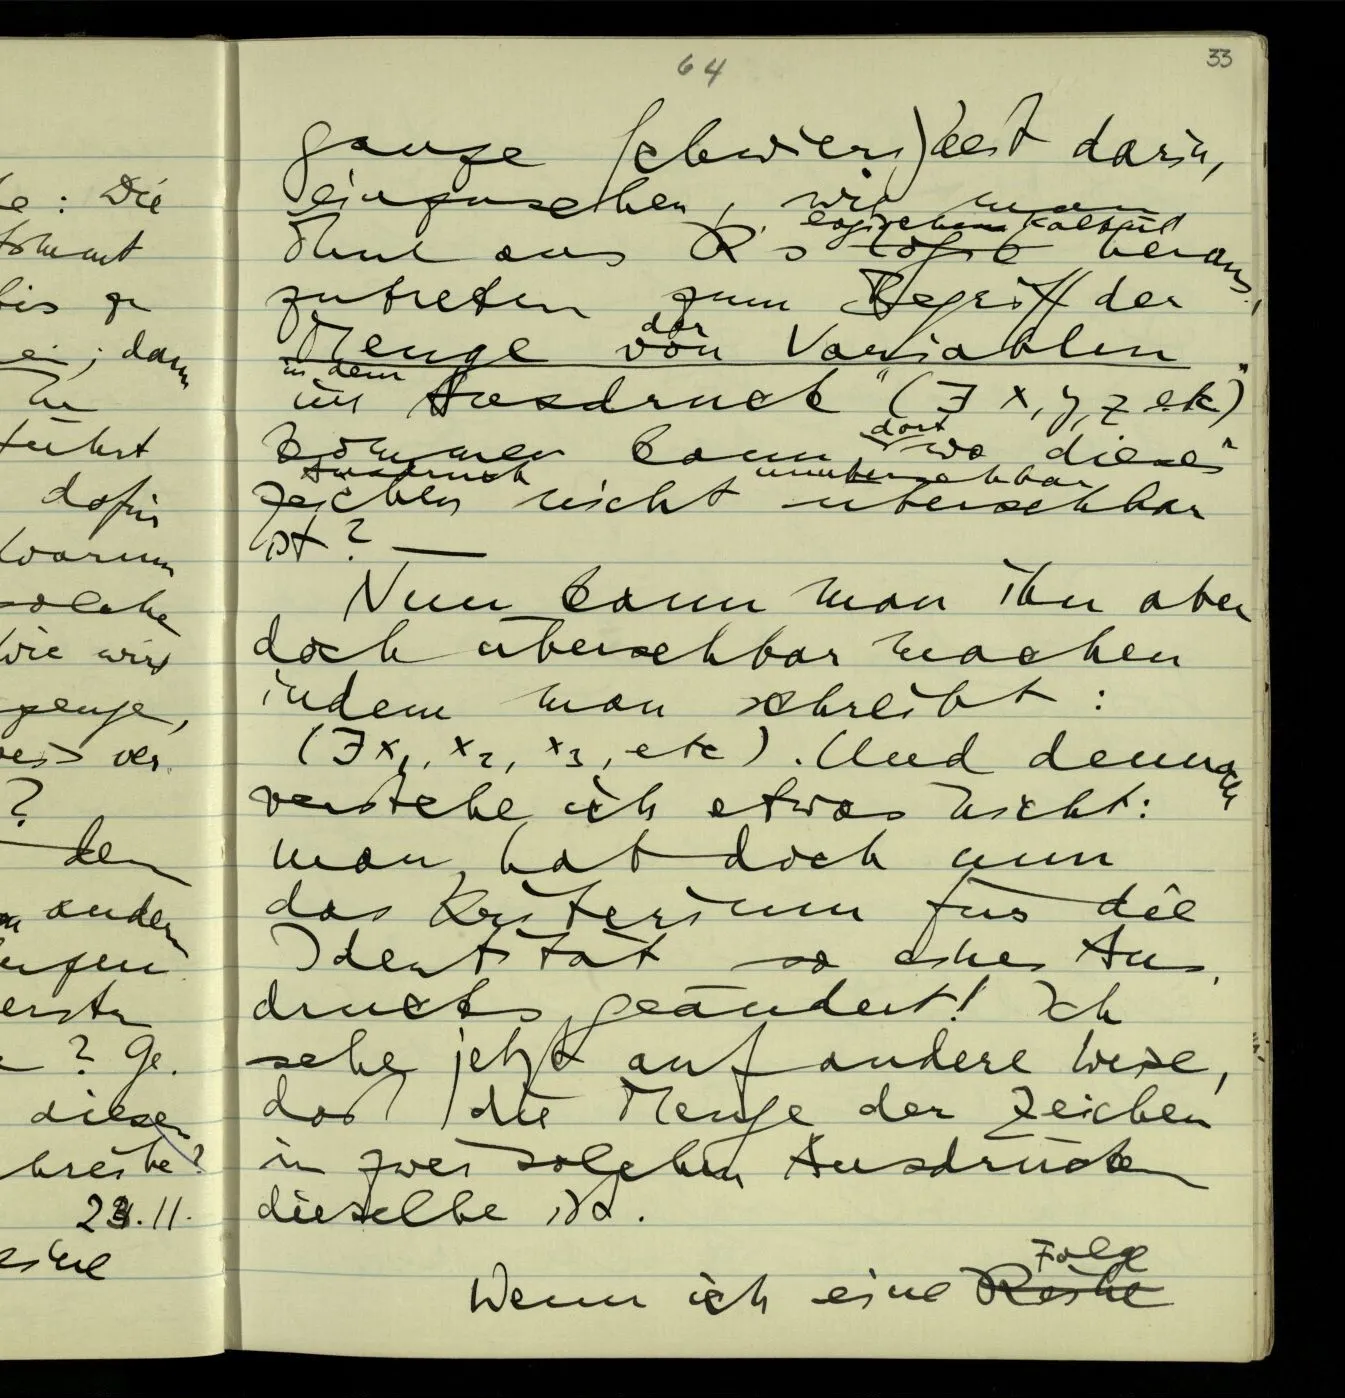 e: Die
bis zu
; dann
führt
dafür
warum
solche
wie wir
ver
?
den
andern
ersten
? Ge-
diesen
?
23.11.
64
33
ganze Schwierigkeit darin,
einzusehen, wie man
ohne aus R's Logik heraus-
logischem Kalkül
zutreten zum Begriff der
Menge von Variablen
der
im Ausdruck "(∃ x, y, z etc)"
in dem
kommen kann, wo dieses
dort
Zeichen nicht übersehbar
Ausdruck unübersehbar
ist? —
Nun kann man ihn aber
doch übersehbar machen
indem man schreibt:
(∃x₁, x₂, x₃, etc). Und dennoch
verstehe ich etwas nicht:
man hat doch nun
das Kriterium für die
Identität so eines Aus-
drucks geändert! Ich
sehe jetzt auf andere Weise,
daß die Menge der Zeichen
in zwei solchen Ausdrücken
dieselbe ist.
Wenn ich eine Reihe
Folge